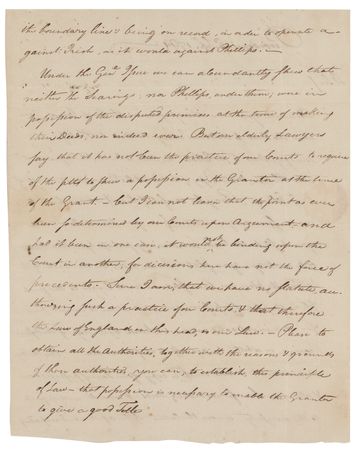 the boundary line & being on record, in order to operate a-
gainst Trish, as it would against Phillips.—
Under the Genl. Issue we can abundantly shew that
neither the Searings, nor Phillips, under them, were in
possession of the disputed premises at the time of making
their Deeds, nor indeed ever. But our elderly Lawyers
say that it has not been the practice of our Courts to require
of the pltff to shew a possession in the Grantor at the time
of the Grant — but I can not learn that the point has ever
been so determined by our Courts upon Argument. and
had it been in one case, it would not be binding upon the
Court in another, for decisions here have not the force of
precedents. Sure I am, that we have no Statute au-
thorizing such a practice of our Courts, & that therefore
the Law of England on this head, is our Law. — Please to
obtain all the Authorities, together with the reasons & grounds
of those authorities, you can, to establish this principle
of Law — that possession is necessary to enable the Grantor
to give a good Title